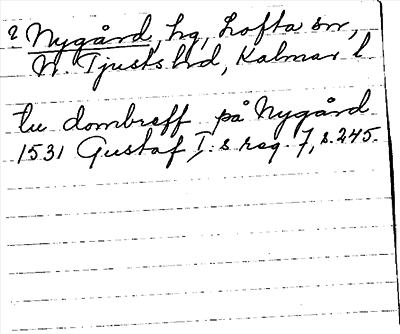 ? Nygård, hg, Lofta sn,
N. Tjusts hd, Kalmar l
tu dombreff på Nygård
1531 Gustaf I:s reg. 7, s. 245.